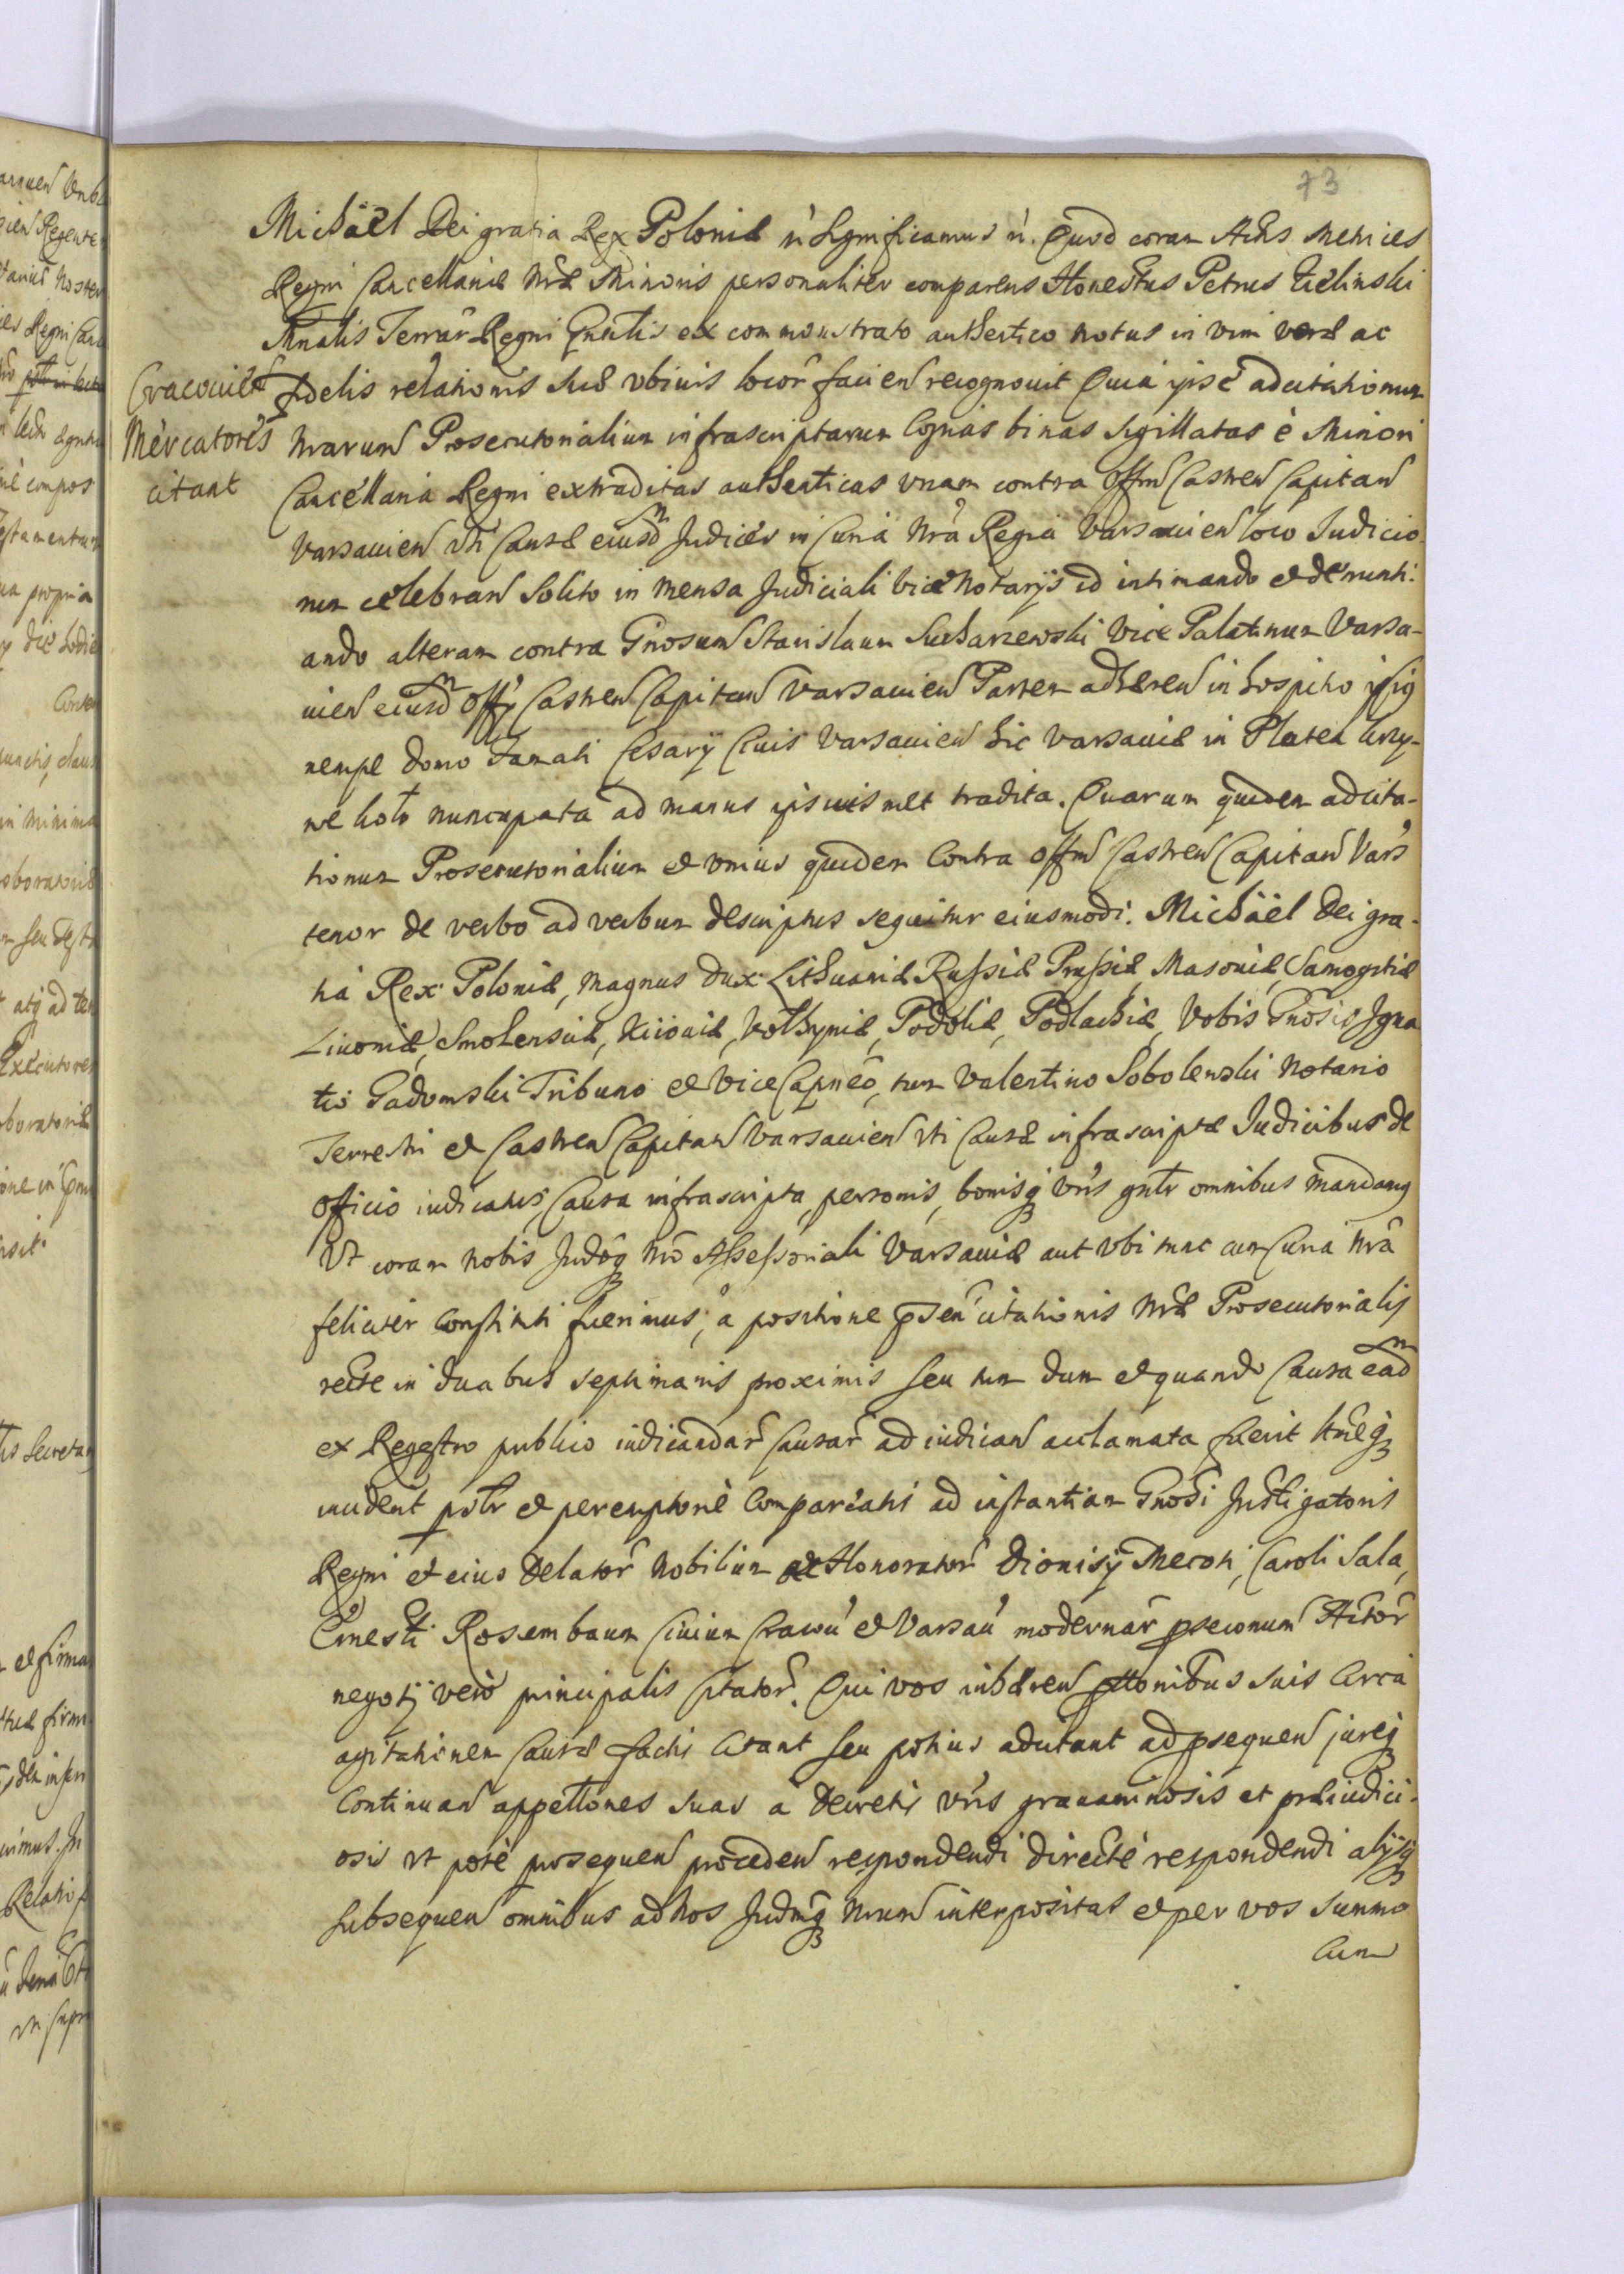 73
Michäel Dei gratia Rex Poloniæ ñ Significamus ñ. Quod coram Actis Metrices
Regni Cancellariæ Nræ Minoris personaliter comparens Honestus Petrus Zielinski
Mnalis Terrar Regni Gnrlis ex commonstrato authentico notus in vim veræ ac
fidelis relationis suæ vbiuis locor facien recognouit Quia ipse adcitationum
Cracouien
Mercatores
citant
Nrarum Prosecutorialium infrascriptarum Copias binas sigillatas è Minori
Cancellaria Regni extraditas authenticas vnam contra Offm Castren Capitan
Varsauien vti Causæ eiusdm Judices in Curia Nra Regia Varsauien loco Judicio
rum celebran solito in Mensa Judiciali vice Notarys id intimando et denunti-
ando alteram contra Gnosum Stanislaum Sucharzewski Vice Palatinum Varsa-
uien eiusdm Offy Castren Capitan Varsauien Partem adhæren in hospitio ipsig
nempe domo Famati Cesary Ciuis Varsauien hic Varsauiæ in Platea krzy-
we koło nuncupata ad manus ipsiusmet tradita. Quarum quidem adcita-
tionum Prosecutorialium et vnius quidem Contra Offm Castren Capitan Vars
tenor de verbo ad verbum descriptus sequitur eiusmodi. Michäel Dei gra-
tia Rex Poloniæ, Magnus Dux Lithuaniæ Russiæ Prussiæ, Masouiæ, Samogitiæ
Liuoniæ, Smolensciæ, Kiiouiæ, Volhyniæ, Podoliæ, Podlachiæ, Vobis Gnosis Igna
tio Gadomski Tribuno et Vice Capneo, tum Valentino Sobolewski Notario
Terrestri et Castren Capitan Varsauien vti Causæ infrascriptæ Judicibus de
officio iudicatis, Causa infrascripta, personis, bonisq vris gnlr omnibus mandamg
Vt coram nobis Judoq Nro Assessoriali Varsauiæ aut vbi tunc cum Curia Nra
feliciter constituti fuerimus, a positione psen citationis Nræ Prosecutorialis
recte in duabus septimanis proximis seu tum dum et quando Causa eadm
ex Regestro publico iudicandar Causar ad iudican acclamata fuerit ltmeq
incident pslr et peremptoriè Compareatis ad instantiam Gnosi Instigatoris
Regni et eius delator Nobilium et Honorator Dionisy Meroti, Caroli Sala,
Ernesti Rosembaum Ciuium Cracou et Varsau modernar psecutionum Actor
negotij verò principalis Citator. Qui vos inhæren pttonibus suis Circa
agitationem Causæ factis Citant seu potius adcitant ad psequen jureq
Continuan appettones suas a decretis vris grauaminosis et præiudici-
osis vt pote prosequen proceden respondendi directè respondendi alijsq
subsequen omnibus ad Nos Judmq Nrum interpositas et per vos summo
Cum